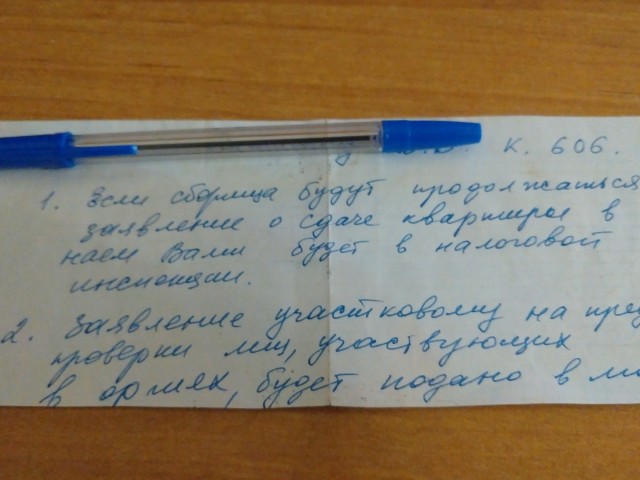 К. 606.
1. Если сборища будут продолжаться
заявление о сдаче квартиры в
наем Вами будет в налоговой
инспекции.
2. Заявление участковому на пред
проверки лиц, участвующих
в оргиях, будет подано в ми